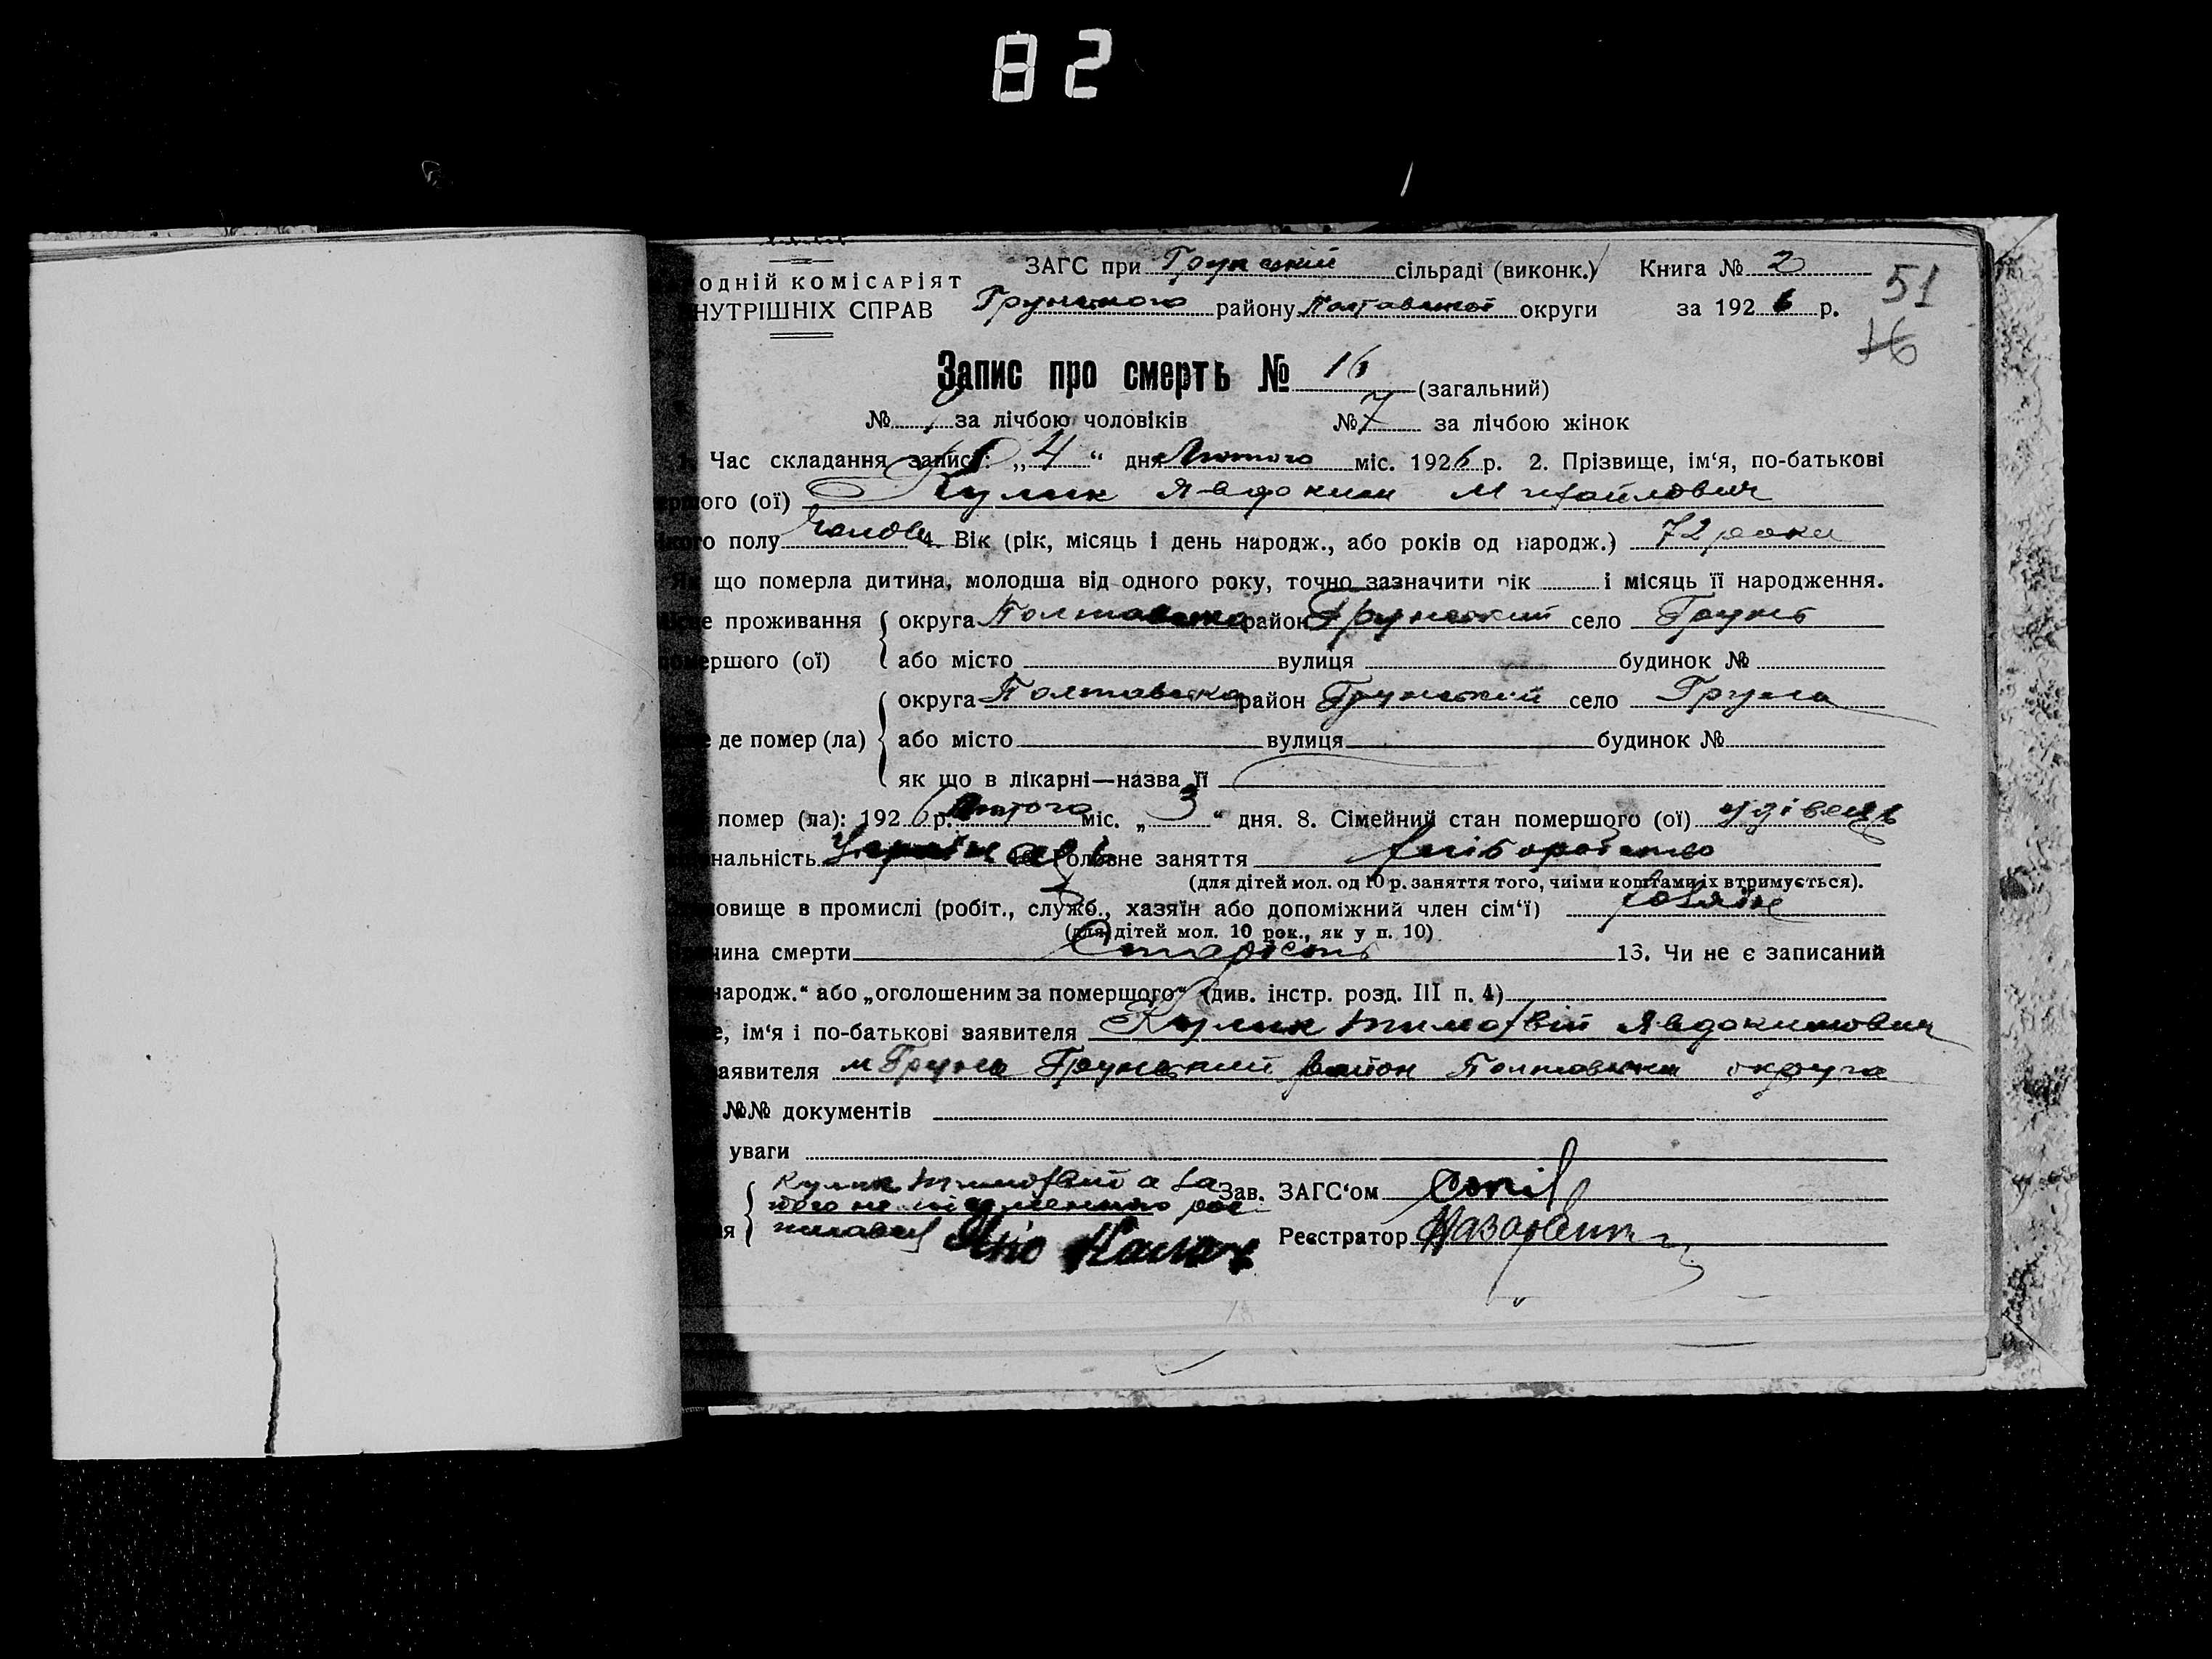 82
ЗАГС при Грунський сільраді (виконк.) Книга № 2
51
одній комісаріят
Грунського району Полтавської округи за 1926 р.
нутрішніх справ
16
Запис про смерть № 16 (загальний)
№ за лічбою чоловіків №7 за лічбою жінок
Час складання запису: „4“ дня Лютого міс. 1926 р. 2. Прізвище, ім‘я, по-батькові
ого (ої) Кулик Явдоким Михайлович
о полу чолов 4. Вік (рік, місяць і день народж., або років од народж.) 72 роки
Як що померла дитина, молодша від одного року, точно зазначити рік і місяць її народження.
проживання округа Полтавська район Грунський село Грунь
мершого (ої) або місто вулиця будинок №
округа Полтавська район Грунський село Грунь
де помер (ла) або місто вулиця будинок №
як що в лікарні—назва її
помер (ла): 1926 р. Лютого міс. „3“ дня. 8. Сімейний стан помершого (ої) удівець
нальність Українець 10. Головне заняття хліборобство
(для дітей мол. од 10 р. заняття того, чиїми коштами їх втримується).
овище в промислі (робіт., служб., хазяїн або допоміжний член сім‘ї) хазяїн
(для дітей мол. 10 рок., як у п. 10)
чина смерти Старість 13. Чи не є записаний
народж.“ або „оголошеним за помершого“ (див. інстр. розд. III п. 4)
е, ім‘я і по-батькові заявителя Кулик Тимофвій Явдокимович
аявителя м Грунь Грунський район Полтавська округа
№№ документів
уваги
Кулик Тимофвій а за Зав. ЗАГС‘ом
його не
я Реєстратор